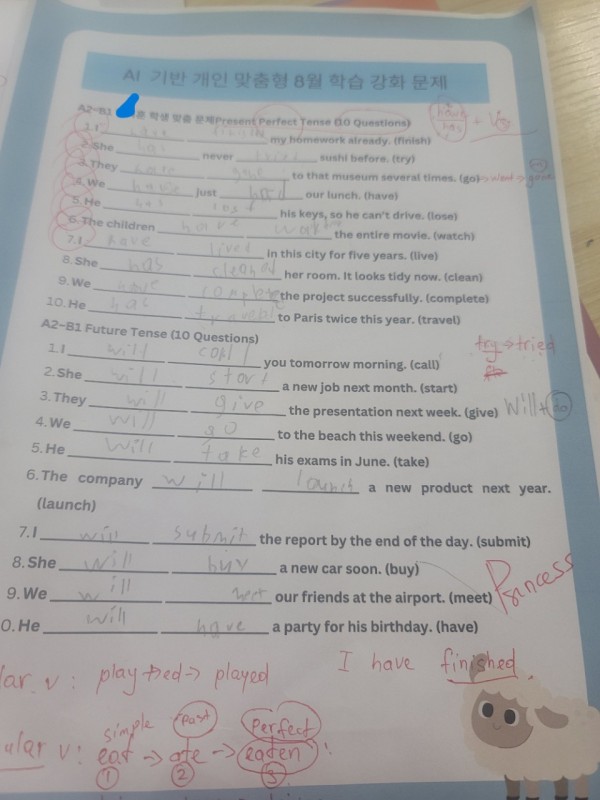 AI 기반 개인 맞춤형 8월 학습 강화 문제
A2-B1 학생 맞춤 문제Present Perfect Tense (10 Questions)
have/has + V3
1. I have finish my homework already. (finish)
2. She has never tried sushi before. (try)
3. They have gone to that museum several times. (go) → went → gone
4. We have just had our lunch. (have)
5. He has lost his keys, so he can't drive. (lose)
6. The children have the entire movie. (watch)
7. I have lived in this city for five years. (live)
8. She has cleaned her room. It looks tidy now. (clean)
9. We have complete the project successfully. (complete)
10. He has to Paris twice this year. (travel)
try → tried
A2-B1 Future Tense (10 Questions)
1. I will call you tomorrow morning. (call)
2. She will start a new job next month. (start)
3. They will give the presentation next week. (give) Will + do
4. We will go to the beach this weekend. (go)
5. He will take his exams in June. (take)
6. The company will a new product next year.
(launch)
7. I will submit the report by the end of the day. (submit)
8. She will buy a new car soon. (buy)
Princess
9. We will our friends at the airport. (meet)
0. He will have a party for his birthday. (have)
I have finished.
lar v: play+ed → played
simple past perfect
ular v: eat → ate → eaten
1 2 3